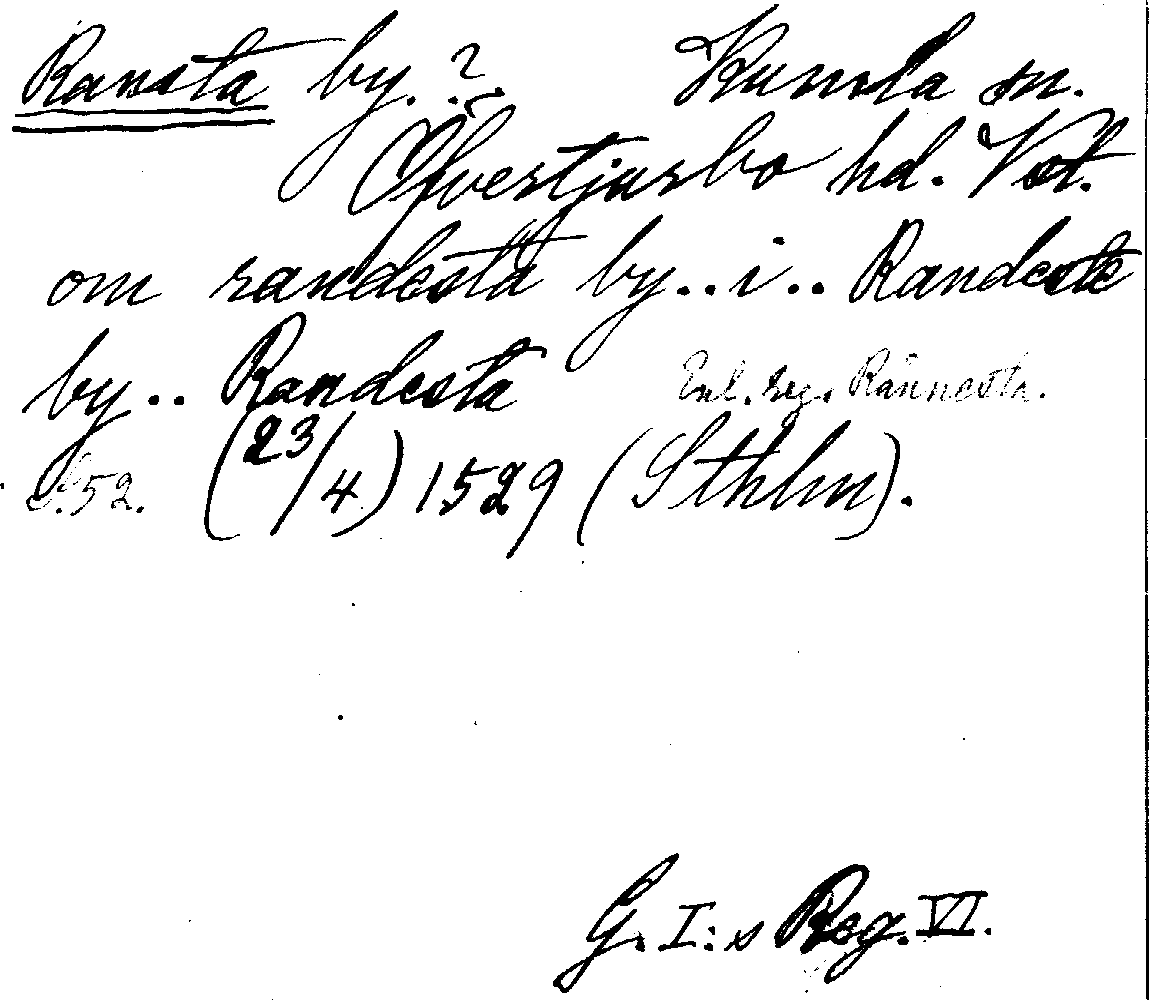 Ransta by. ? Kumla sn.
Öfvertjurbo hd. Vstl.
om randesta by.. i.. Randeste
by.. Randesta Enl. reg. Rännesta.
S. 52. (23/4) 1529 (Sthlm).
G. I:s Reg. VI.